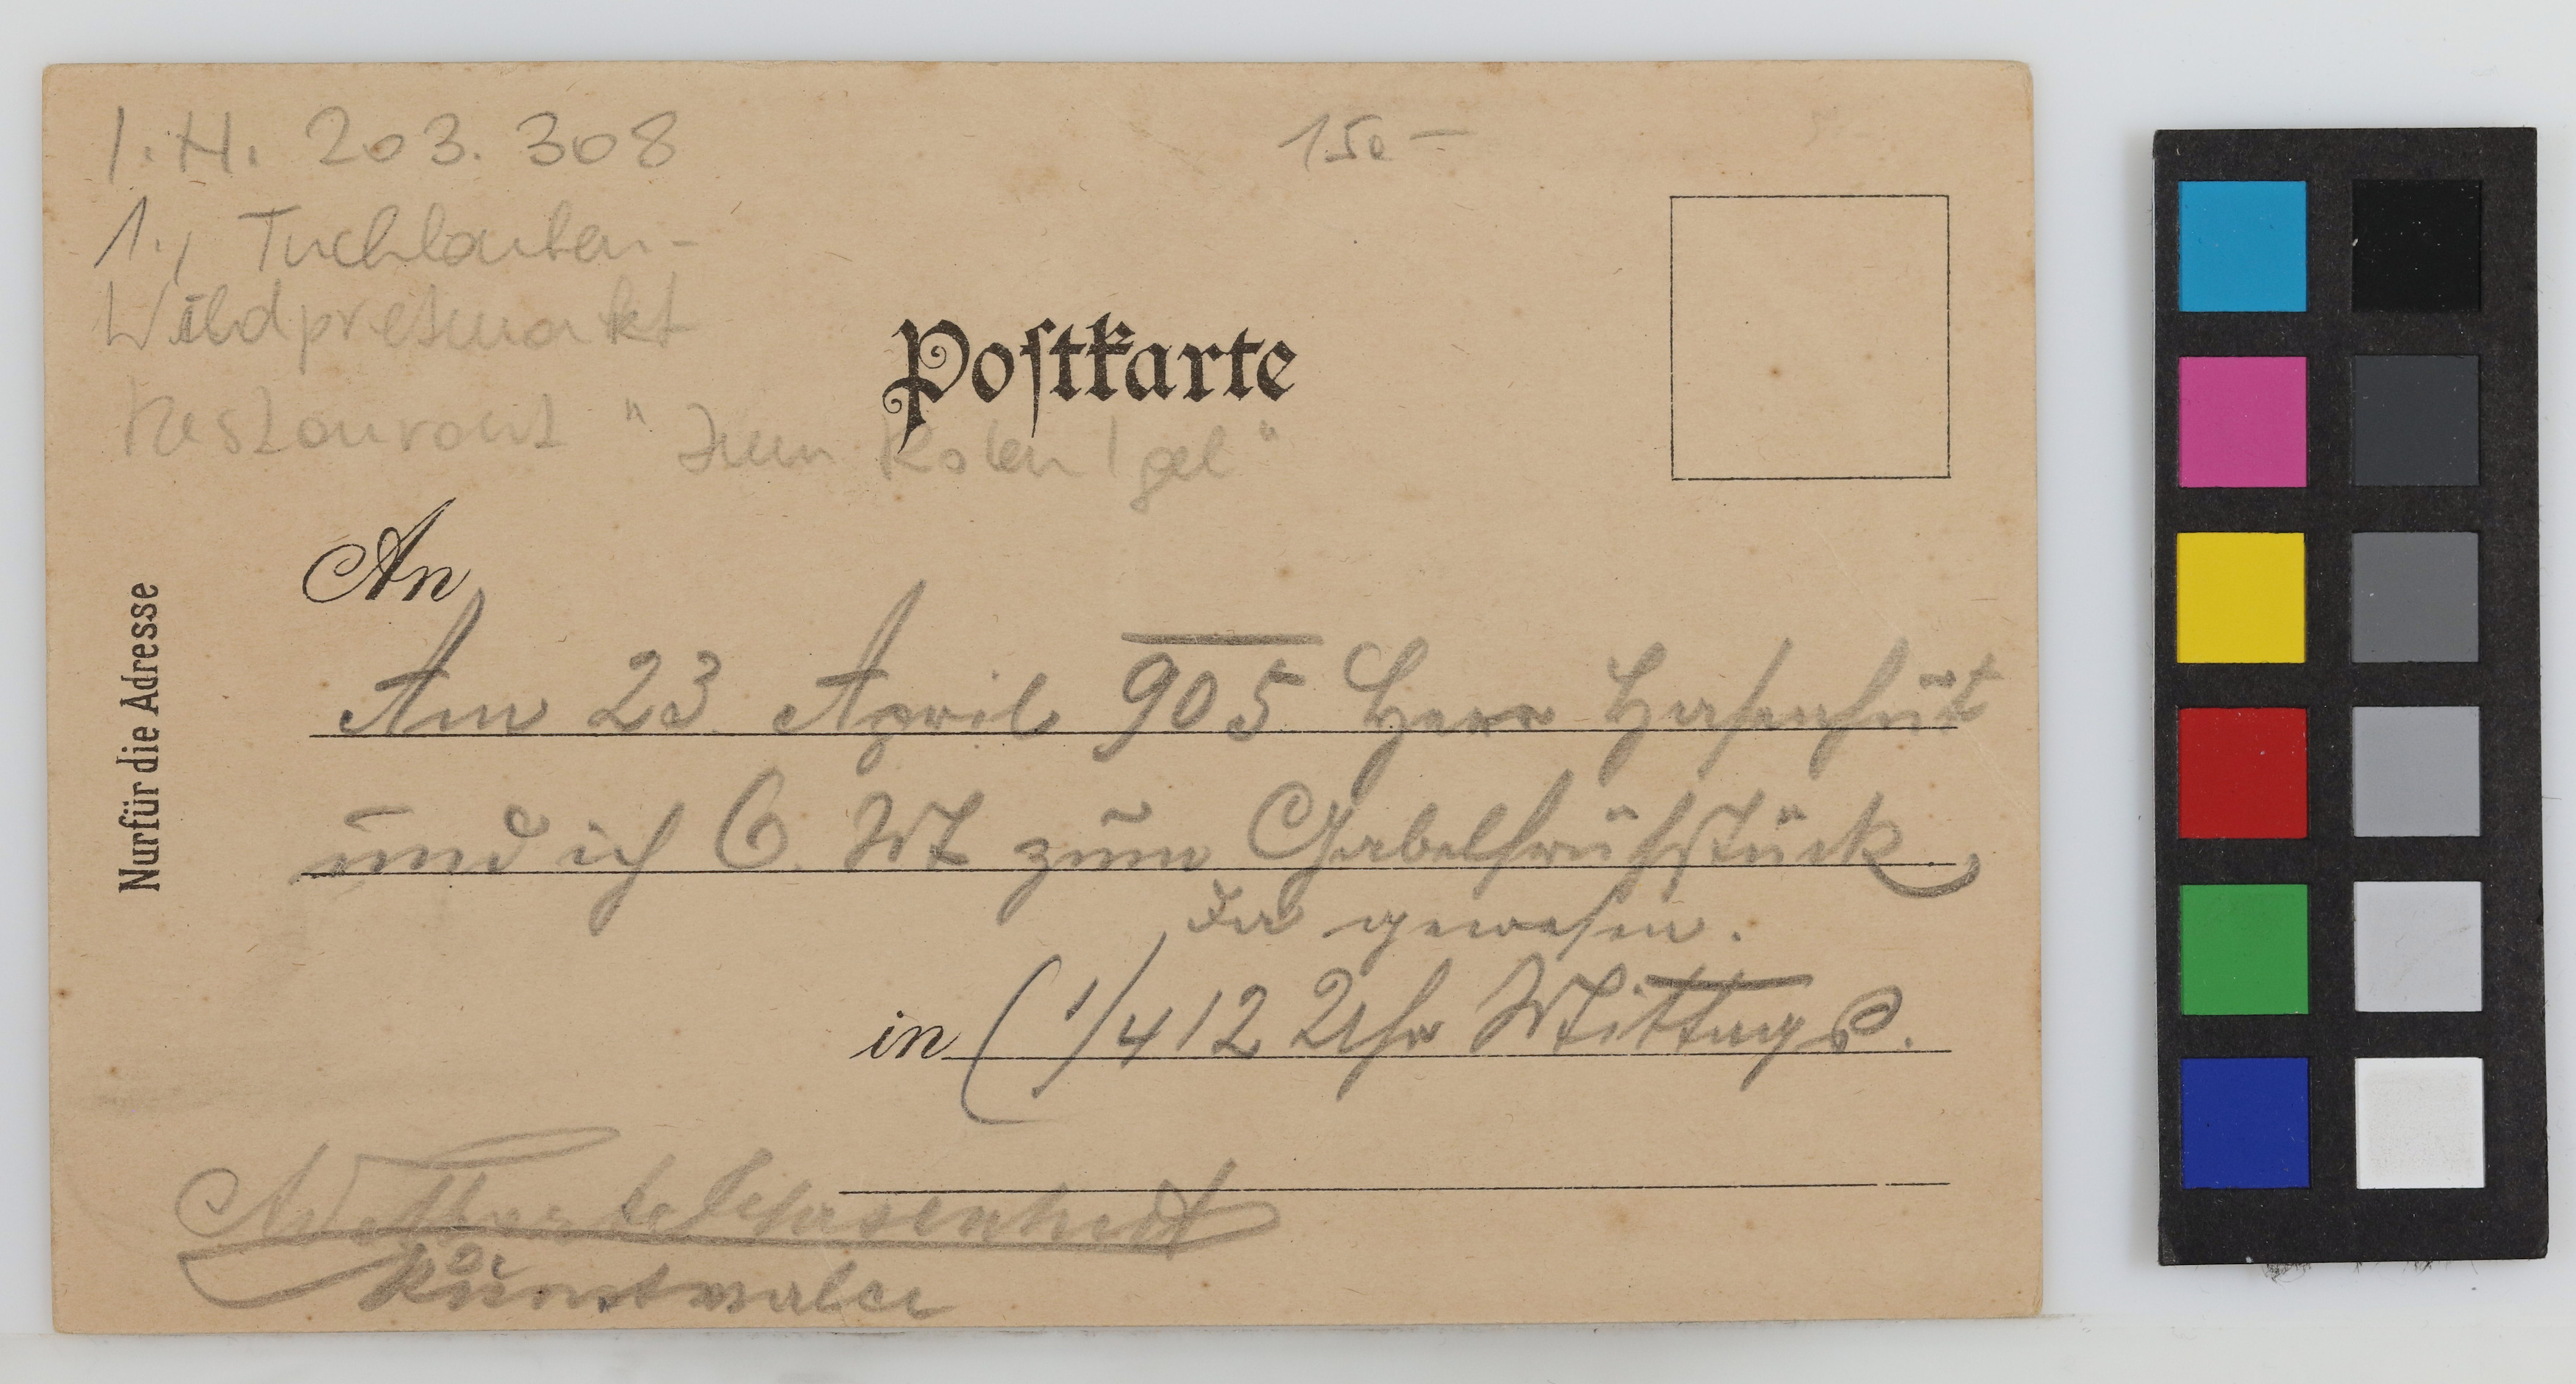 I.N. 203.308
150 –
1., Tuchlauben-
Wildpretmarkt
Restaurant "Zum Roten Igel"
Postkarte
An
Nur für die Adresse
Am 23 April 905 Herr Hasenhüt
und ich C. M zum Gabelfrühstück
da gewesen.
in (1/4 12 Uhr Mittags.
Kunstmaler